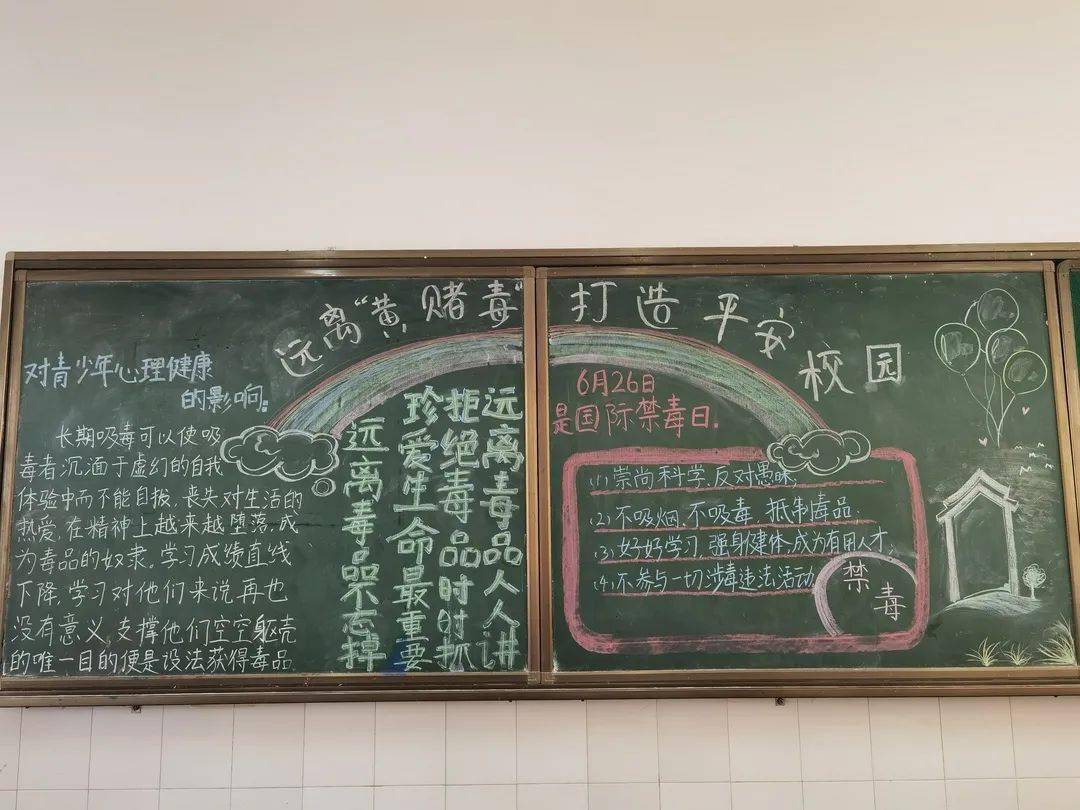 远离“黄,赌毒” 打造平安校园
对青少年心理健康
的影响:
长期吸毒可以使吸
毒者沉湎于虚幻的自我
体验中而不能自拔,丧失对生活的
热爱,在精神上越来越堕落,成
为毒品的奴隶。学习成绩直线
下降,学习对他们来说再也
没有意义,支撑他们空空躯壳
的唯一目的便是设法获得毒品
远离毒品人人讲
拒绝毒品时时抓
珍爱生命最重要
远离毒品不忘掉
6月26日
是国际禁毒日.
(1)崇尚科学,反对愚昧,
(2)不吸烟,不吸毒 抵制毒品,
(3)好好学习,强身健体,成为有用人才,
(4)不参与一切涉毒违法活动
禁毒